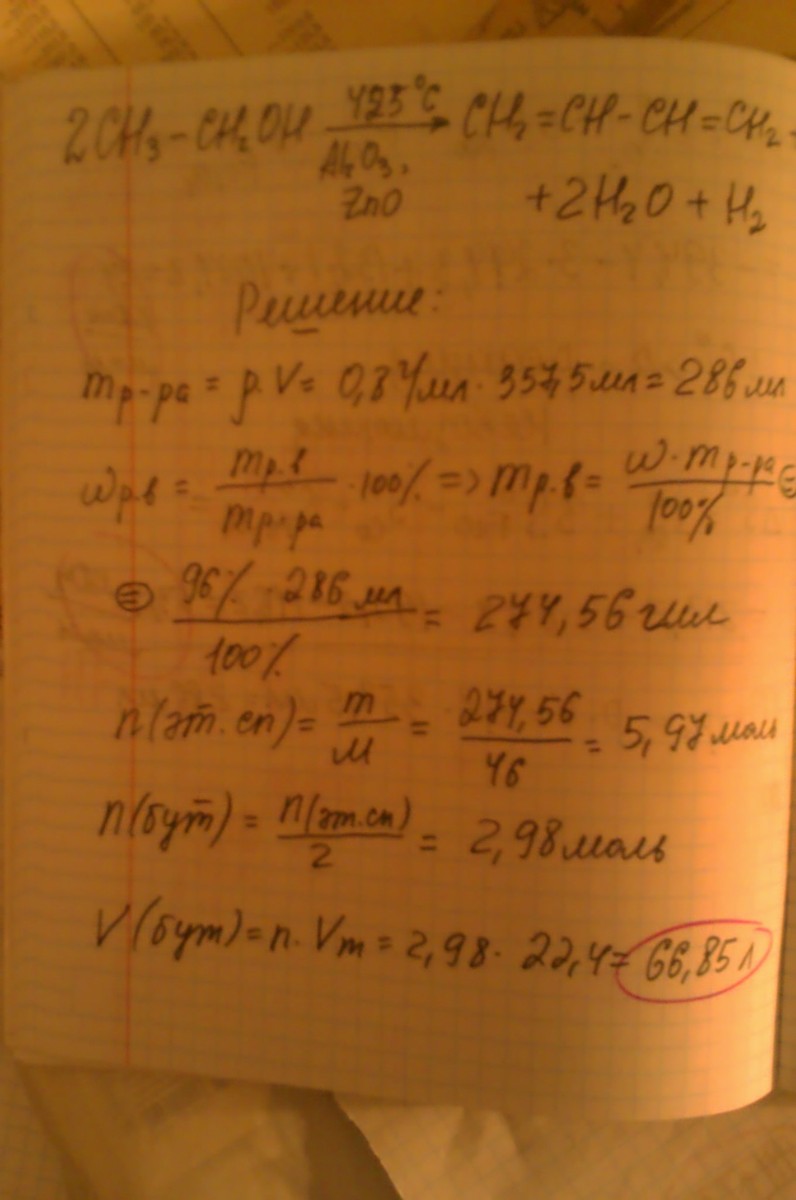 2CH₃-CH₂OH 425°C → CH₂=CH-CH=CH₂ +
Al₂O₃, ZnO
+2H₂O + H₂
Решение:
mр-ра = ρ·V = 0,8 г/мл · 357,5 мл = 286 мл
ωр.в = mр.в / mр-ра · 100% => mр.в = ω·mр-ра / 100% ⊜
⊜ 96% · 286 мл / 100% = 274,56 г мл
n(эт.сп) = m / M = 274,56 / 46 = 5,97 моль
n(бут) = n(эт.сп) / 2 = 2,98 моль
V(бут) = n·Vm = 2,98 · 22,4 = 66,85 л